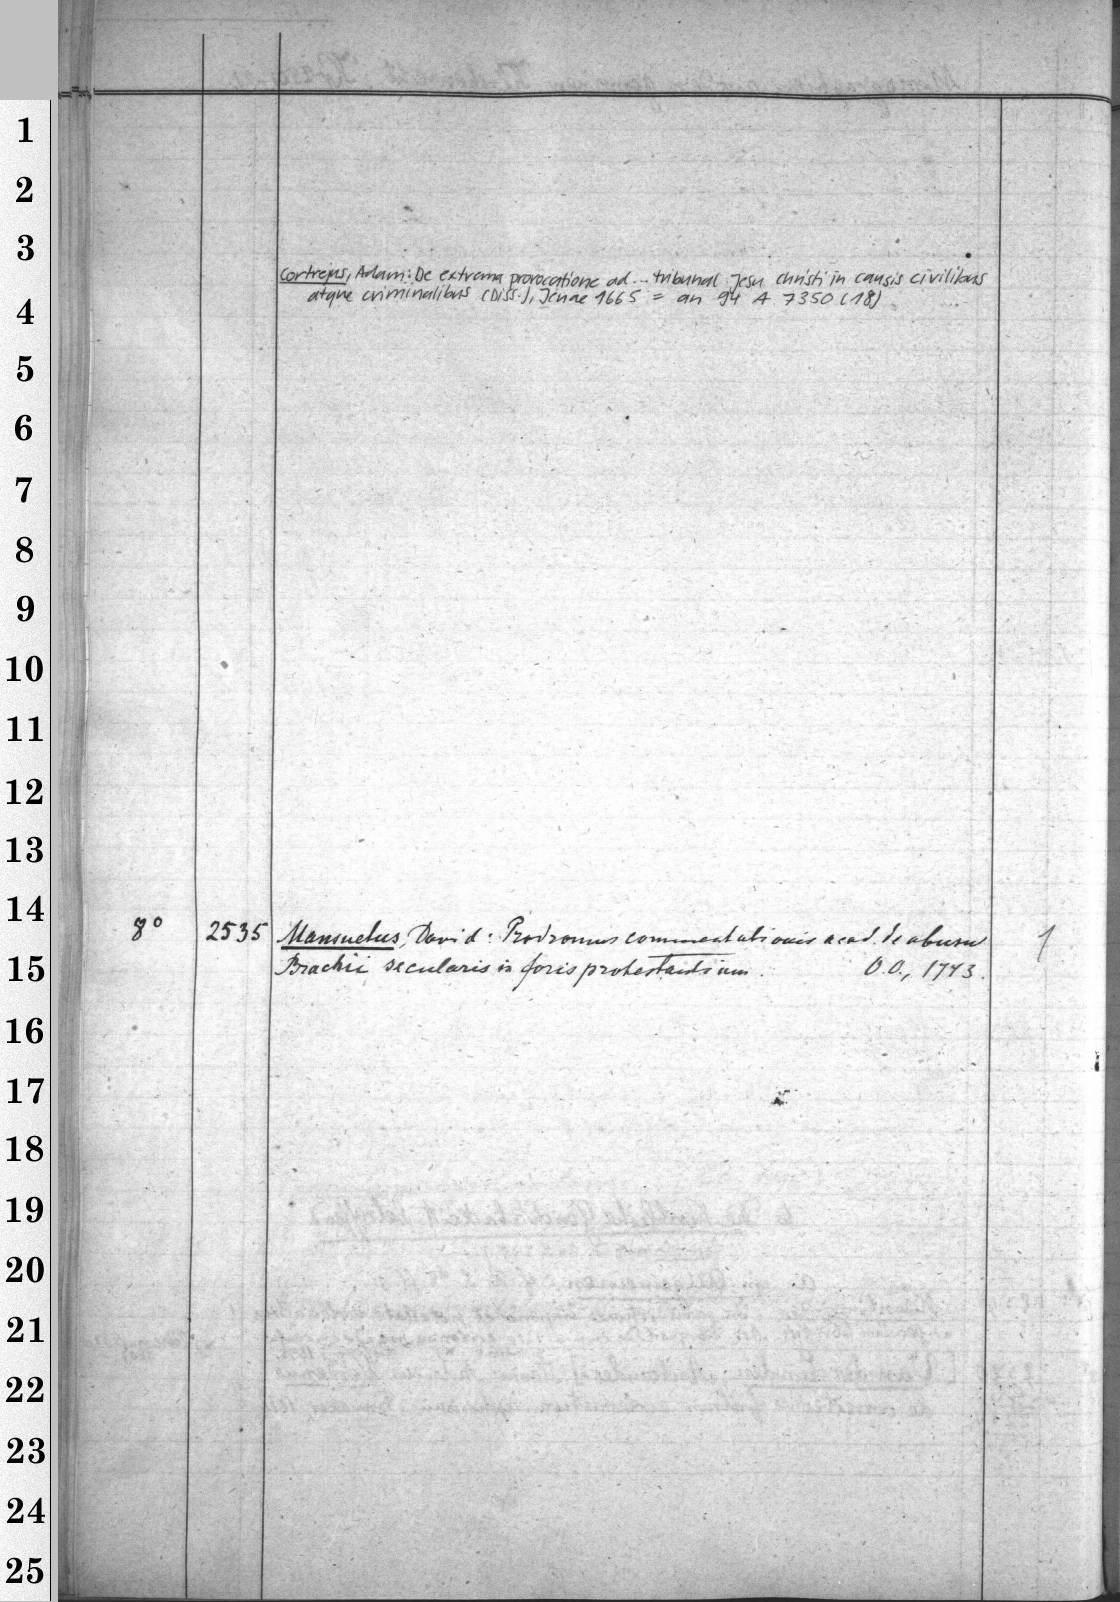 1
2
3
Cortrejus, Adam: De extrema provocatione ad... tribunal Jesu Christi in causis civilibus
atque criminalibus (Diss.), Jenae 1665 = an 94 A 7350 (18)
4
5
6
7
8
9
10
11
12
13
14
8° 2535 Mansuetus, David: Prodromus commentationis acad. de abusu 1
Brachii secularis in foris protestantium. O.O., 1743.
15
16
17
18
19
20
21
22
23
24
25